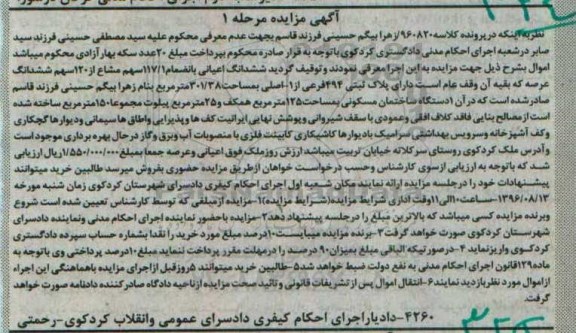 آگهی مزایده مرحله 1
نظر باینکه در پرونده کلاسه 960820 زهرا بیگم حسینی فرزند قاسم بجهت عدم معرفی محکوم علیه سید مصطفی حسینی فرزند سید
صابر در شعبه اجرای احکام مدنی دادگستری کردکوی باتوجه به قرار صادره محکوم بپرداخت مبلغ 20 عدد سکه بهار آزادی محکوم میباشد
اموال بشرح ذیل جهت مزایده به این اجرا معرفی نمودند و توقیف گردید ششدانگ اعیانی بانضمام 117/1 سهم مشاع از 120 سهم ششدانگ
عرصه که بقیه آن وقف عام است دارای پلاک ثبتی 493 فرعی از 1- اصلی بمساحت 301/38 مترمربع بنام زهرا بیگم حسینی فرزند قاسم
صادر شده است که در آن 1 دستگاه ساختمان مسکونی بمساحت 125 مترمربع همکف و 25 مترمربع پیلوت مجموعا 150 مترمربع ساخته شده
است از مصالح بنایی فاقد کلاف افقی و عمودی با سقف شیروانی و پوشش نهایی ایرانیت کف ها و پذیرایی واطاق ها سیمانی و دیوارها گچکاری
و کف آشپزخانه و سرویس بهداشتی سرامیک بادیوارها کاشیکاری کابینت فلزی با منصوبات آب وبرق وگاز در حال بهره برداری موجود است
و آدرس ملک کردکوی روستای سرکلاته خیابان تربیت میباشد ارزش روز ملک فوق اعیانی وعرصه جمعا بمبلغ 1/550/000/000 ریال ارزیابی
شد که باتوجه به ارزیابی از سوی کارشناس وحسب درخواست خواهان از طریق مزایده حضوری بفروش میرسد طالبین خرید میتوانند
پیشنهادات خود را در جلسه مزایده ارائه نمایند مکان شعبه اول اجرای احکام کیفری دادسرای شهرستان کردکوی زمان شنبه مورخه
1396/08/13-ساعت 10 الی 11 وقت اداری شرایط مزایده (شرایط مزایده) 1- مزایده از مبلغی که توسط کارشناس تعیین شده است شروع
وبرنده مزایده کسی میباشد که بالاترین مبلغ را در جلسه پیشنهاد دهد 2- مزایده باحضور نماینده اجرای احکام مدنی ونماینده دادسرای
شهرستان کردکوی صورت خواهد گرفت 3- برنده مزایده میبایست 10 درصد مبلغ مورد خرید را نقدا بشماره حساب سپرده دادگستری
کردکوی واریز نماید 4- در صورتیکه الباقی مبلغ بمیزان 90 درصد را در مهلت مقرر پرداخت ننماید مبلغ 10 درصد پرداختی وی باتوجه به
ماده 129 قانون اجرای احکام مدنی به نفع دولت ضبط خواهد شد 5- طالبین خرید میتوانند 5 روز قبل از اجرای مزایده باهماهنگی این اجراء
از اموال مورد نظر بازدید نمایند 6- انتقال اموال پس از تشریفات قانونی و تائید صحت مزایده از ناحیه دادگاه صادرکننده دادنامه صورت خواهد
گرفت.
4260- دادیار اجرای احکام کیفری دادسرای عمومی وانقلاب کردکوی- رحمتی